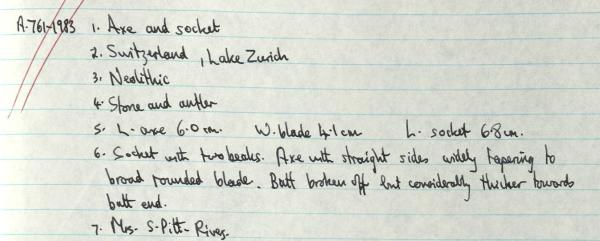 A.761-1983 1. Axe and socket
2. Switzerland, Lake Zurich
3. Neolithic
4. Stone and antler
5. L. axe 6.0 cm. W. blade 4.1cm L. socket 6.8 cm.
6. Socket with two beaks. Axe with straight sides widely tapering to
broad rounded blade. Butt broken off but considerably thicker towards
butt end.
7. Mrs. S. Pitt-Rivers.